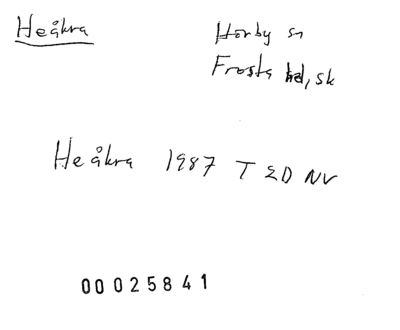 Heåkra
Hörby sn
Frosta hd, sk
Heåkra 1987 T ED NV
00025841